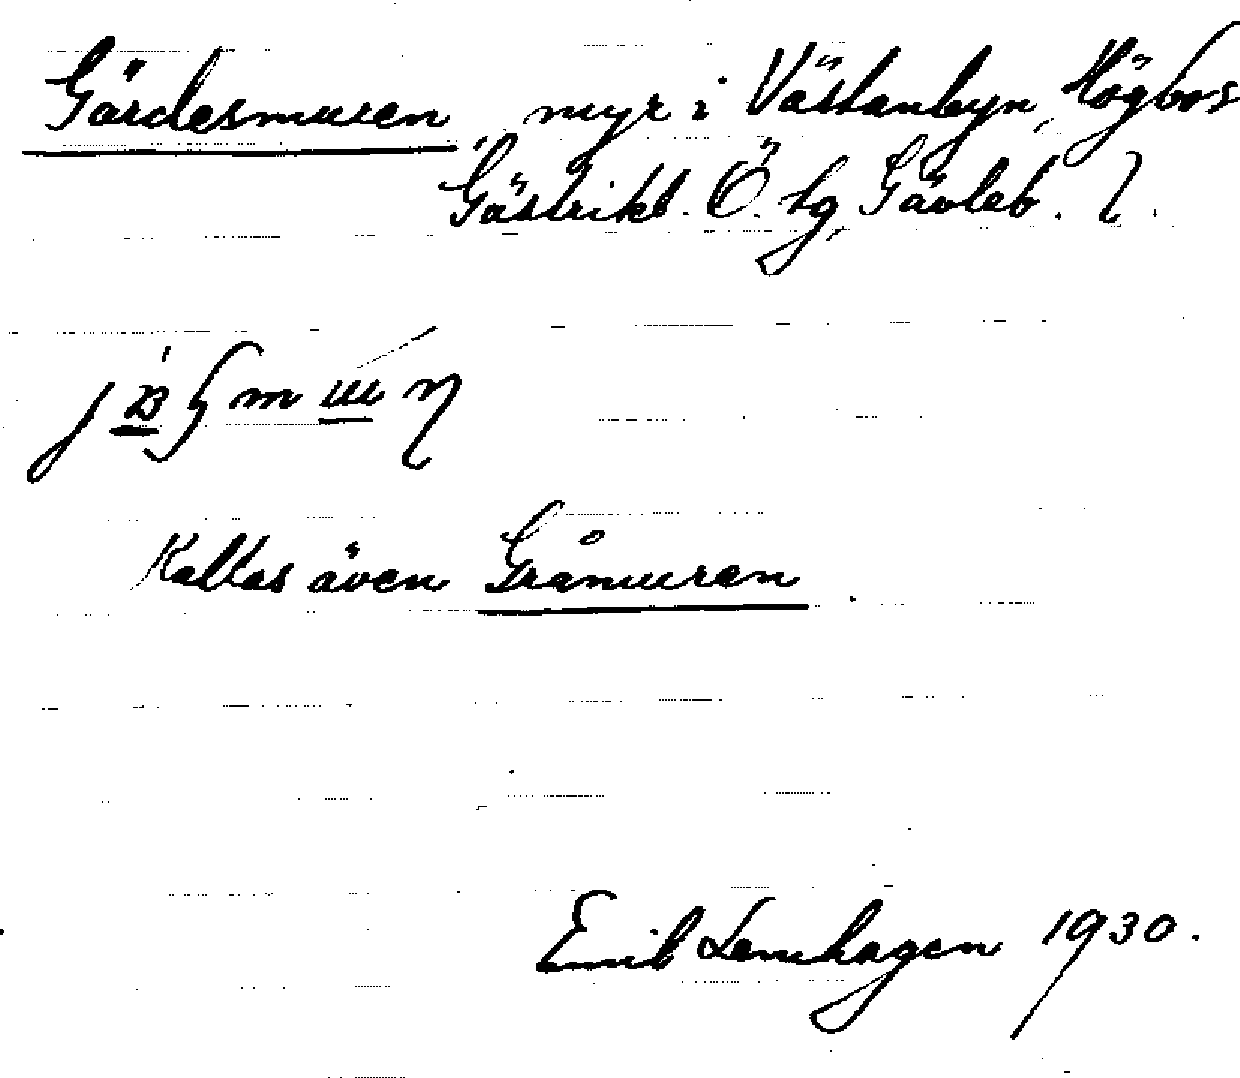 Gärdesmuren myr i Västanbyn, Högbo s
Gästrikl. Ö. tg, Gävleb. l.
Kallas även Gråmuren
Emil Lenhagen 1930.